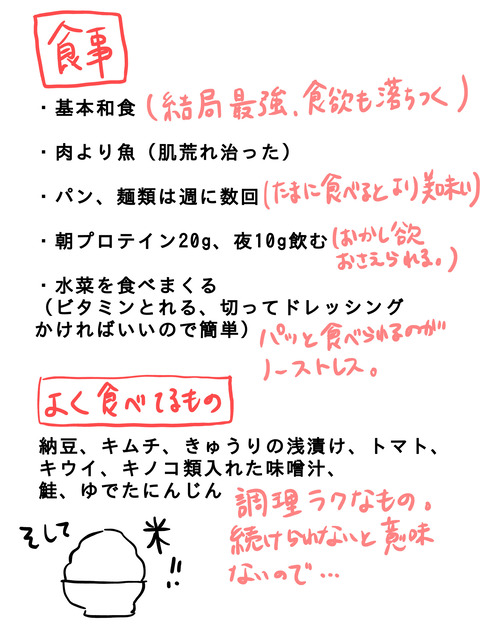 食事
・基本和食（結局最強、食欲も落ちつく）
・肉より魚（肌荒れ治った）
・パン、麺類は週に数回（たまに食べるとより美味い）
・朝プロテイン20g、夜10g飲む（おかし欲
おさえられる。）
・水菜を食べまくる
（ビタミンとれる、切ってドレッシング
かければいいので簡単）パッと食べられるのが
ノーストレス。
よく食べてるもの
納豆、キムチ、きゅうりの浅漬け、トマト、
キウイ、キノコ類入れた味噌汁、
鮭、ゆでたにんじん
調理ラクなもの。
続けられないと意味
ないので…
そして
米!!